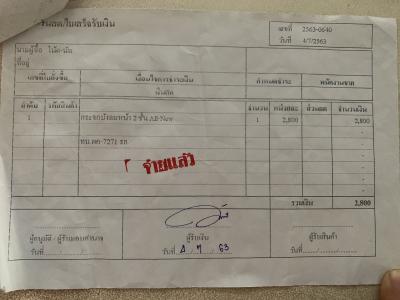 เลขที่ 2563-0640
วันที่ 4/7/2563
นามผู้ซื้อ
ที่อยู่
เลขที่ใบสั่งซื้อ เงื่อนไขการชำระเงิน กำหนดชำระ พนักงานขาย
เงินสด
ลำดับ รหัสสินค้า จำนวน หน่วยละ ส่วนลด จำนวนเงิน
1 กระจกบังลมหน้า 2 ชั้น All-New 1 2,800 2,800
จ่ายแล้ว
รวมเงิน 2,800
ผู้อนุมัติ / ผู้รับมอบอำนาจ ผู้รับเงิน ผู้รับสินค้า
วันที่ / / วันที่ 4 / 7 / 63 วันที่ / /